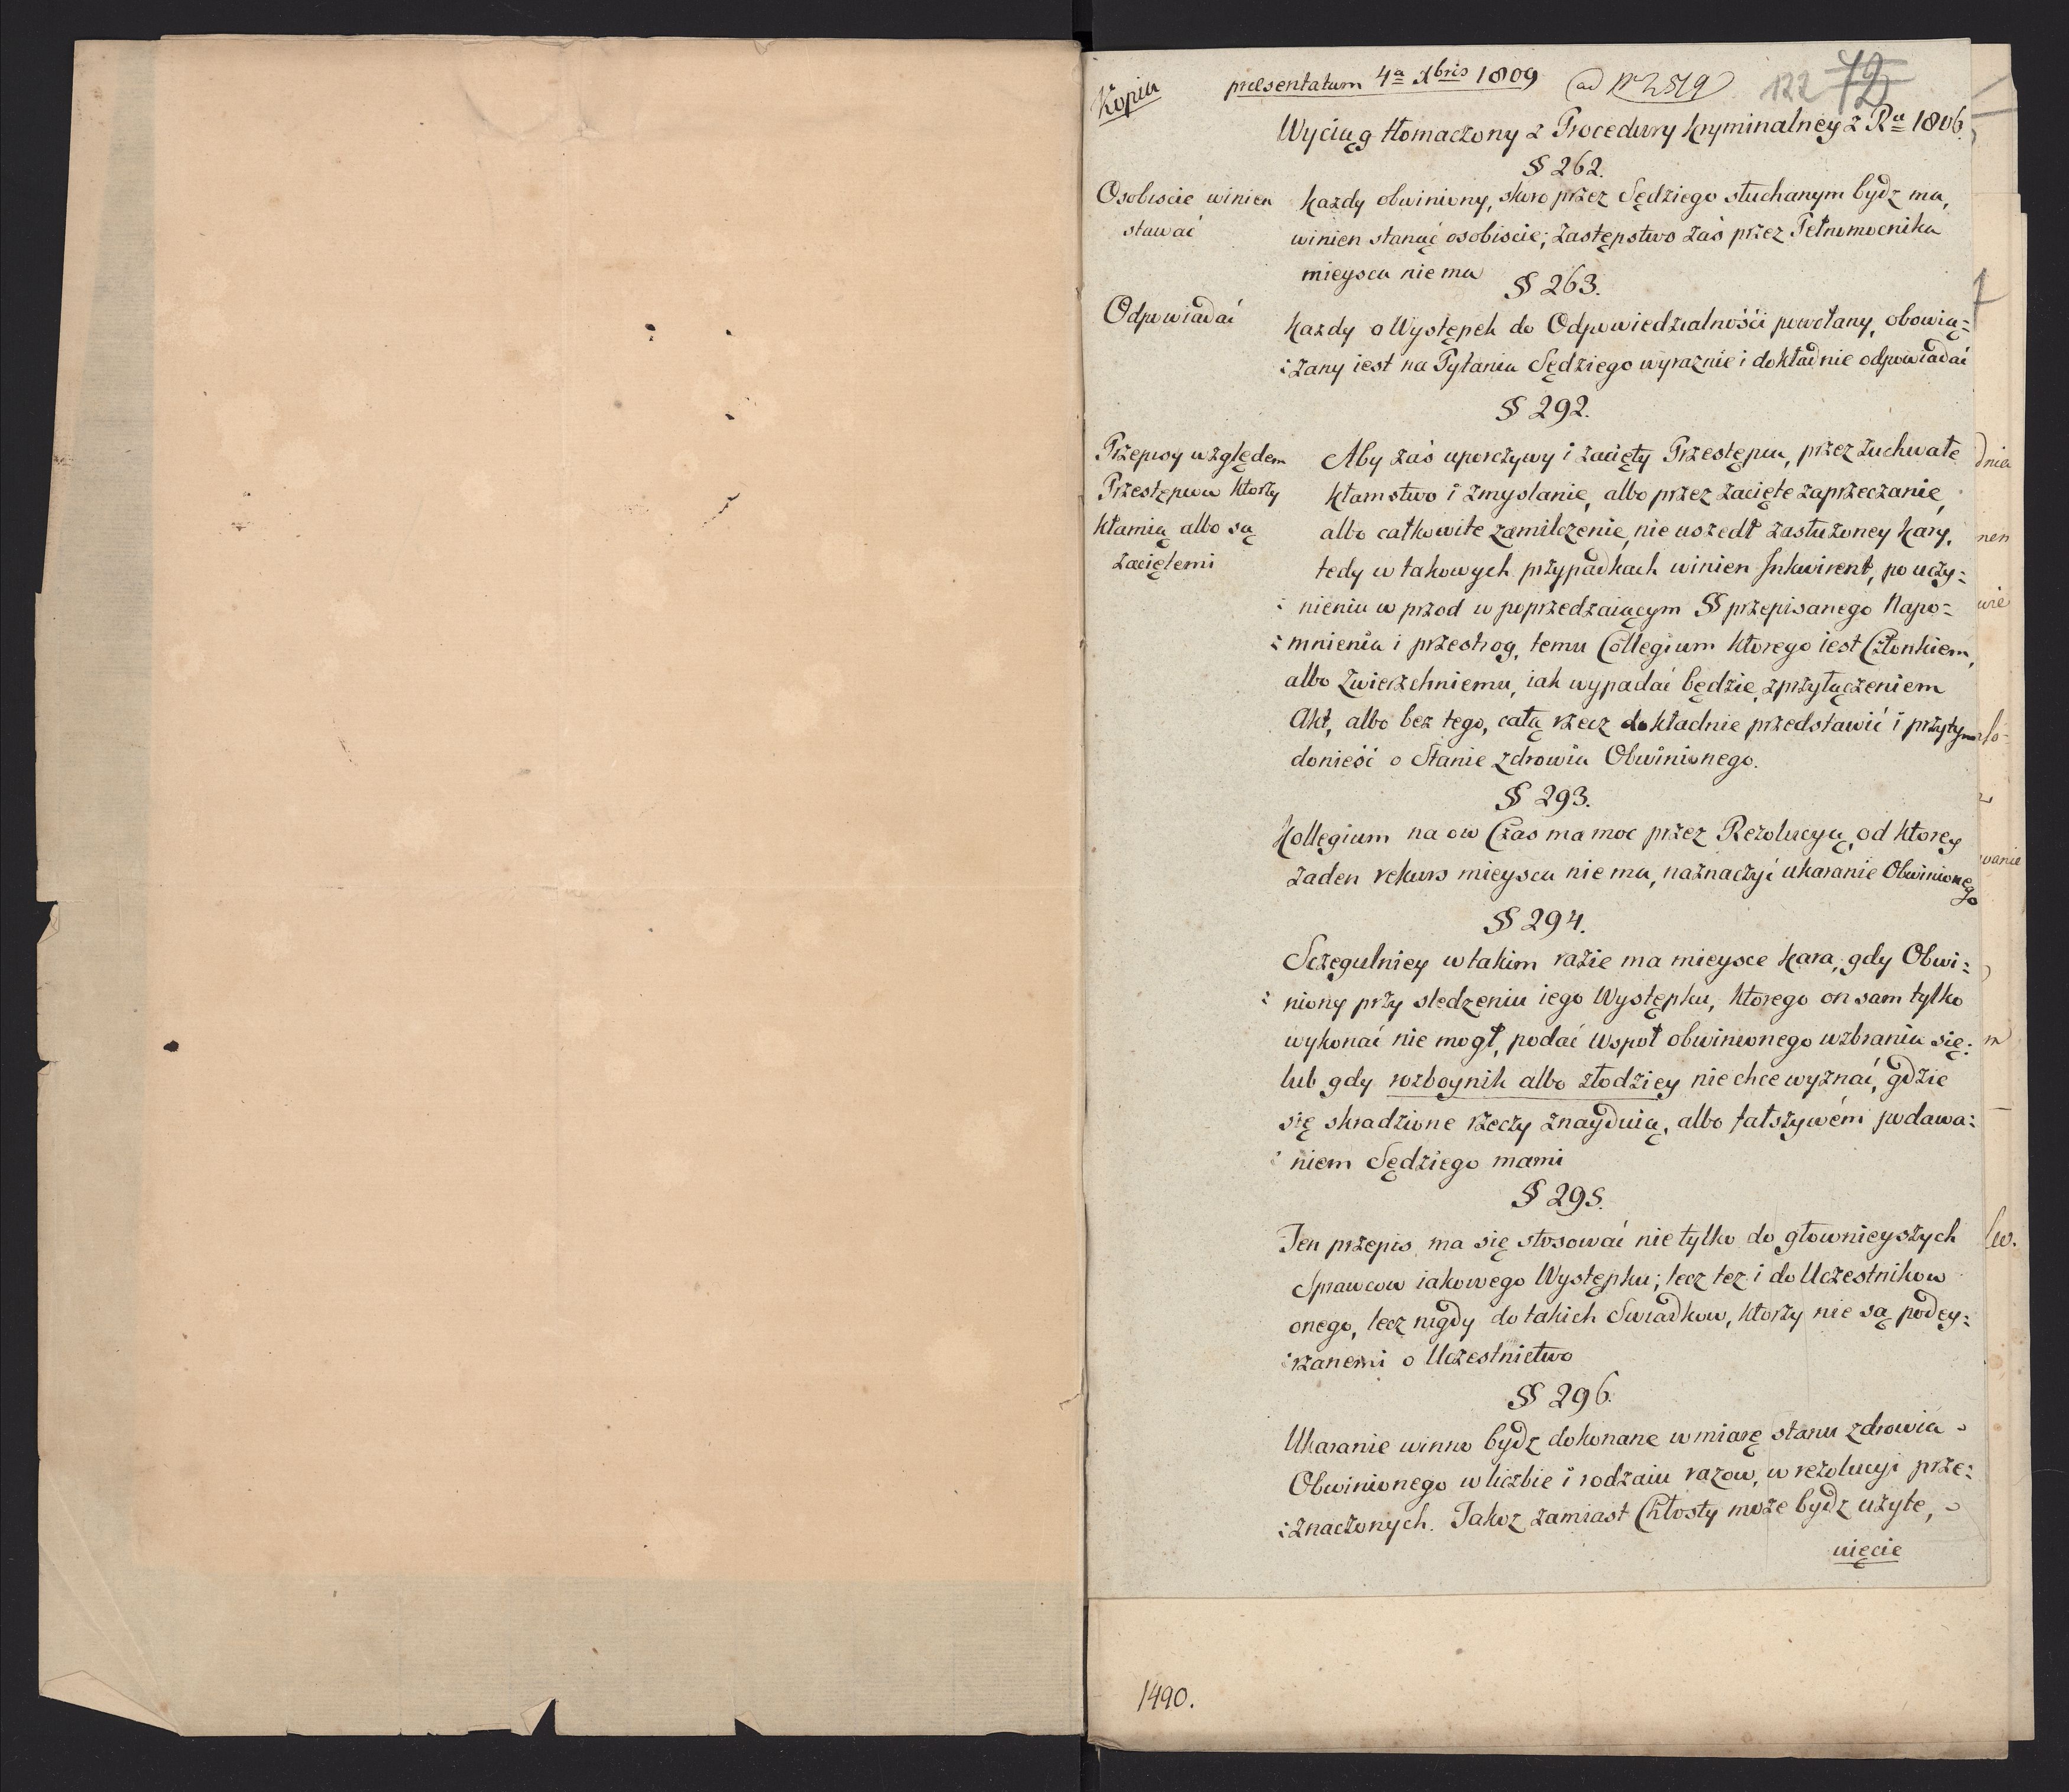 Kopia
præsentatum 4a Xbris 1809 ad Nr 2519
122 72
Wyciąg tłomaczony z Procedury kryminalney z Ru 1806.
§ 262.
Osobiscie winien
stawać
każdy obwiniony, skoro przez Sędziego słuchanym bydz ma,
winien stanąć osobiscie; zastępstwo zaś przez Pełnomocnika
mieysca nie ma
§ 263.
Odpowiadać
każdy o Występek do Odpowiedzialnośći powołany, obowią=
=zany iest na Pytania Sędziego wyraznie i dokładnie odpowiadać
§ 292.
Przepisy względem
Przestępców ktorzy
kłamią albo są
zaciętemi
Aby zaś uporczywy i zacięty Przestępca, przez zuchwałe
kłamstwo i zmyslanie, albo przez zacięte zaprzeczanie,
albo całkowite zamilczenie, nie uszedł zasłużoney kary,
tedy w takowych przypadkach winien Inkwirent, po uczy=
=nieniu w przod w poprzedzaiącym § przepisanego Napo=
=mnienia i przestrog, temu Collegium ktorego iest Członkiem,
albo Zwierzchniemu, iak wypadać będzie, z przyłączeniem
Akt, albo bez tego, całą rzecz dokładnie przedstawić i przytym
donieść o Stanie zdrowia Obwinionego.
§ 293.
Kollegium na ow Czas ma moc przez Rezolucyą, od ktorey
żaden rekurs mieysca nie ma, naznaczyć ukaranie Obwinionego
§ 294.
Sczegulniey w takim razie ma mieysce kara, gdy Obwi=
=niony przy sledzeniu iego Występku, ktorego on sam tylko
wykonać nie mogł, podać Wspoł obwinionego wzbrania się:
lub gdy rozboynik albo złodziey nie chce wyznać, gdzie
się skradzione rzeczy znayduią, albo fałszywém podawa=
=niem Sędziego mami
§ 295.
Ten przepis ma się stosować nie tylko do głownieyszych
Sprawcow iakowego Występku; lecz też i do Uczestnikow
onego, lecz nigdy do takich Swiadkow, ktorzy nie są podey=
=rzanemi o Uczestnictwo
§ 296.
Ukaranie winno bydz dokonane w miarę stanu zdrowia
Obwinionego w liczbie i rodzaiu razow, w rezolucyi prze=
=znaczonych. Jakoż zamiast Chłosty może bydz użyte,
uięcie
1490.